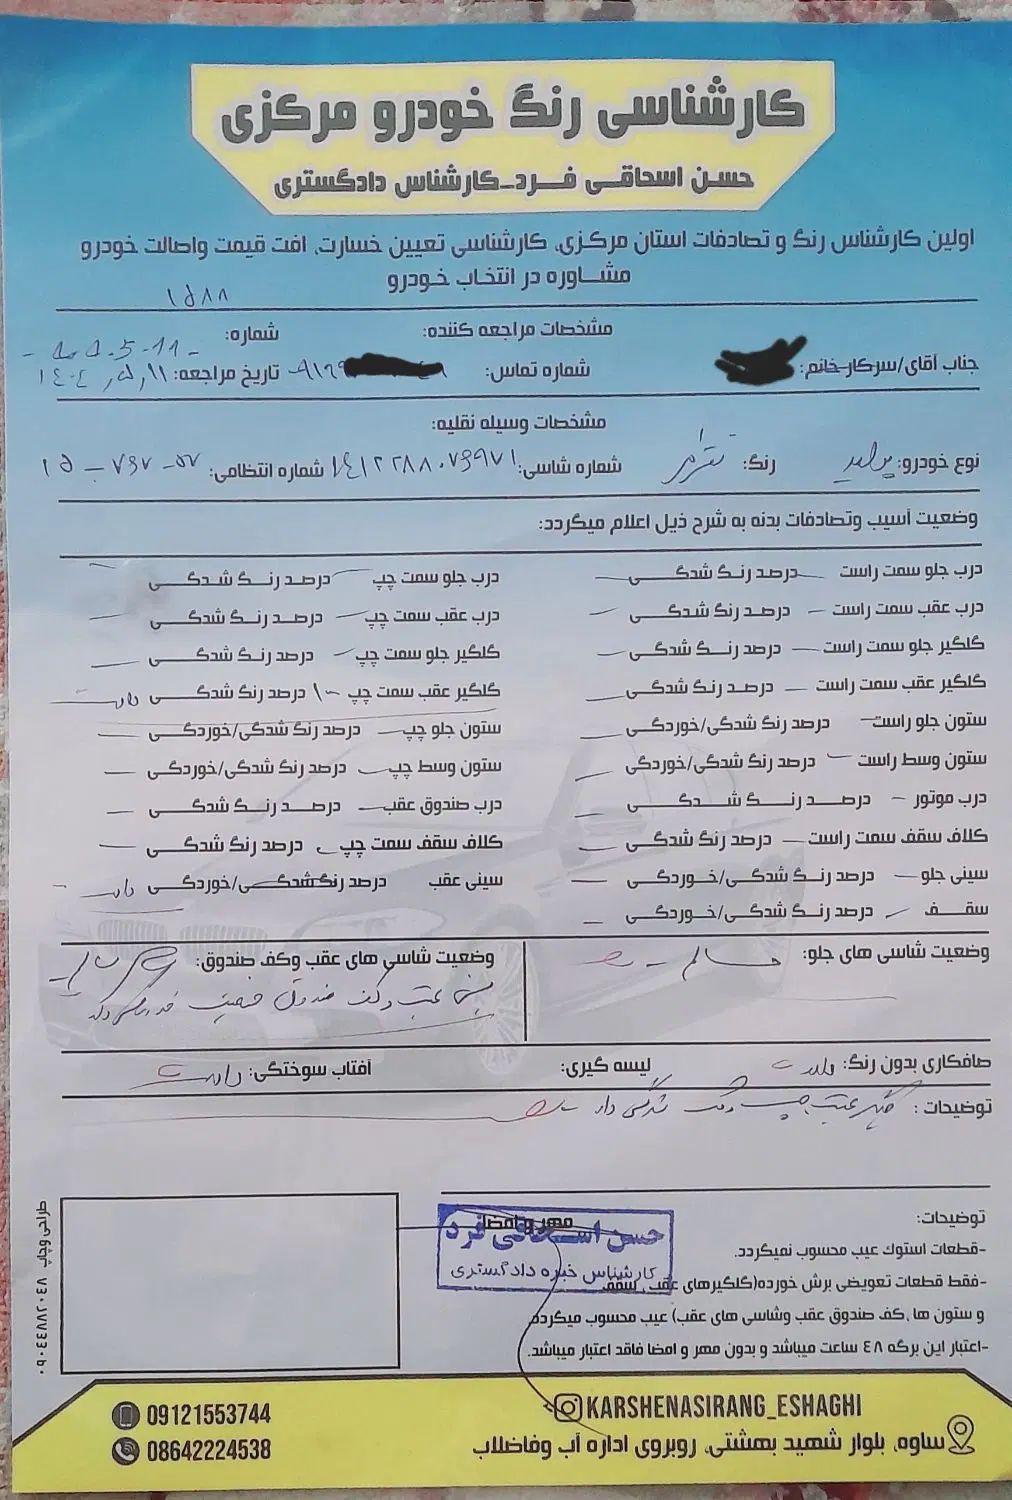 کارشناسی رنگ خودرو مرکزی
حسن اسحاقی فرد-کارشناس دادگستری
اولین کارشناس رنگ و تصادفات استان مرکزی، کارشناسی تعیین خسارت، افت قیمت واصالت خودرو
مشاوره در انتخاب خودرو
۱۵۸۸
مشخصات مراجعه کننده: شماره:
جناب آقای/سرکار خانم: شماره تماس: تاریخ مراجعه: ۱۴۰۴,۵,۱۱
مشخصات وسیله نقلیه:
نوع خودرو: پراید رنگ: شماره شاسی: شماره انتظامی:
وضعیت آسیب وتصادفات بدنه به شرح ذیل اعلام میگردد:
درب جلو سمت راست — درصد رنگ شدگی — درب جلو سمت چپ — درصد رنگ شدگی —
درب عقب سمت راست — درصد رنگ شدگی — درب عقب سمت چپ — درصد رنگ شدگی —
گلگیر جلو سمت راست — درصد رنگ شدگی — گلگیر جلو سمت چپ — درصد رنگ شدگی —
گلگیر عقب سمت راست — درصد رنگ شدگی — گلگیر عقب سمت چپ ۱۰ درصد رنگ شدگی دارد
ستون جلو راست — درصد رنگ شدگی/خوردگی — ستون جلو چپ — درصد رنگ شدگی/خوردگی —
ستون وسط راست — درصد رنگ شدگی/خوردگی — ستون وسط چپ — درصد رنگ شدگی/خوردگی —
درب موتور — درصد رنگ شدگی — درب صندوق عقب — درصد رنگ شدگی —
کلاف سقف سمت راست — درصد رنگ شدگی — کلاف سقف سمت چپ — درصد رنگ شدگی —
سینی جلو — درصد رنگ شدگی/خوردگی — سینی عقب درصد رنگ شدگی/خوردگی دارد
سقف — درصد رنگ شدگی/خوردگی —
وضعیت شاسی های جلو: سالم وضعیت شاسی های عقب وکف صندوق:
سینی عقب و کف صندوق
صافکاری بدون رنگ: دارد لیسه گیری: آفتاب سوختگی: دارد
توضیحات: گلگیر عقب چپ رنگ شدگی دارد
توضیحات:
-قطعات استوک عیب محسوب نمیگردد.
-فقط قطعات تعویضی برش خورده(گلگیرهای عقب، سقف
و ستون ها ،کف صندوق عقب وشاسی های عقب) عیب محسوب میگردد.
-اعتبار این برگه ۴۸ ساعت میباشد و بدون مهر و امضا فاقد اعتبار میباشد.
مهر و امضا
حسن اسحاقی فرد
کارشناس خبره دادگستری
طراحی وچاپ ۰۹۰۴۴۸۸۲۰۴۸
09121553744
08642224538
KARSHENASIRANG_ESHAGHI
ساوه، بلوار شهید بهشتی، روبروی اداره آب وفاضلاب